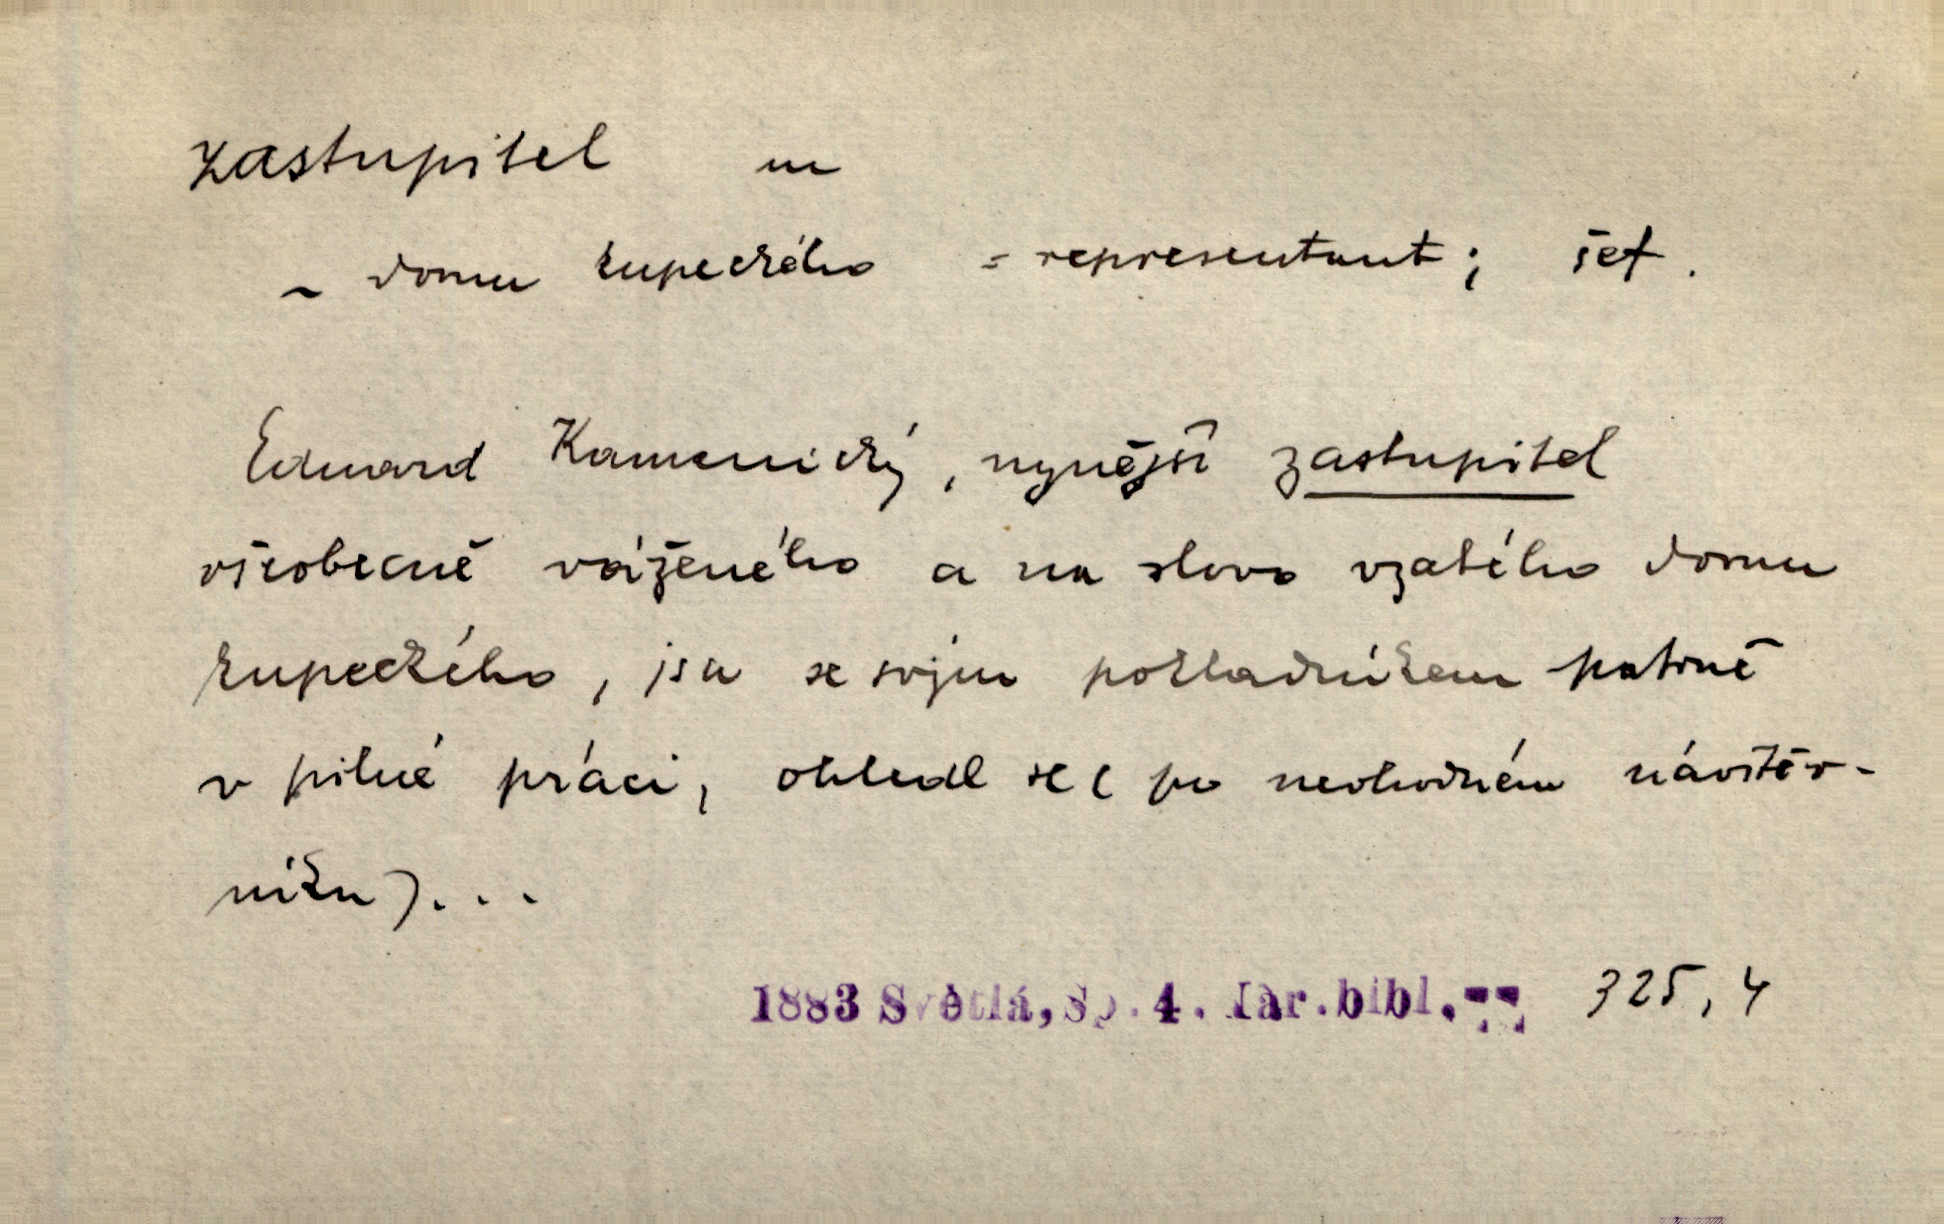 zastupitel m
~ domu kupeckého = representant; šéf.
Eduard Kamenický, nynější zastupitel
všeobecně váženého a na slovo vzatého domu
kupeckého, jsa se svým pokladníkem patrně
v pilné práci, ohledl se ( po nevhodném návštěv-
níku)...
1883 Světlá, Sp. 4. Nár. bibl. 325, 4